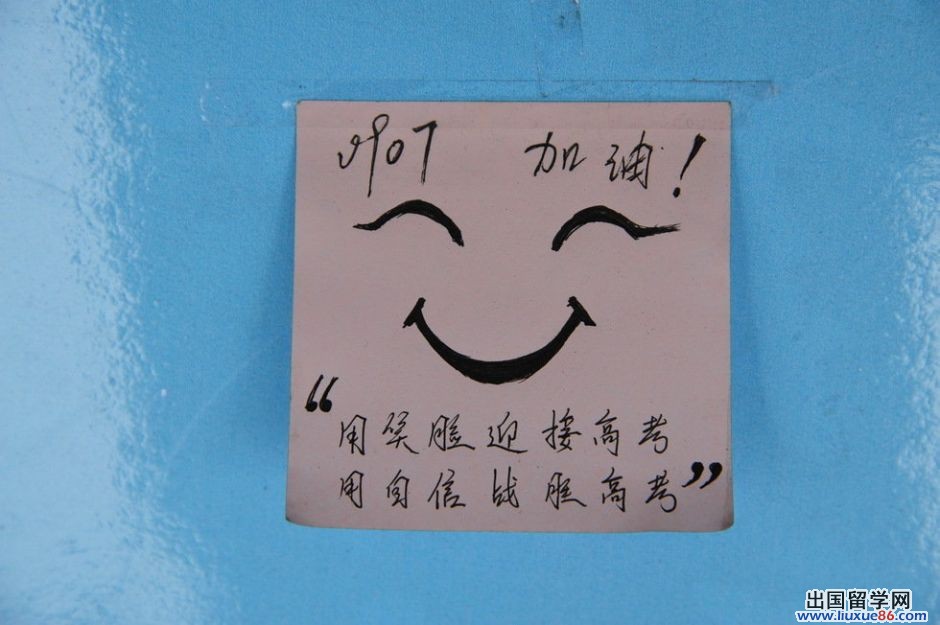 907 加油！
“用笑脸迎接高考
用自信战胜高考”
出国留学网
www.liuxue86.com